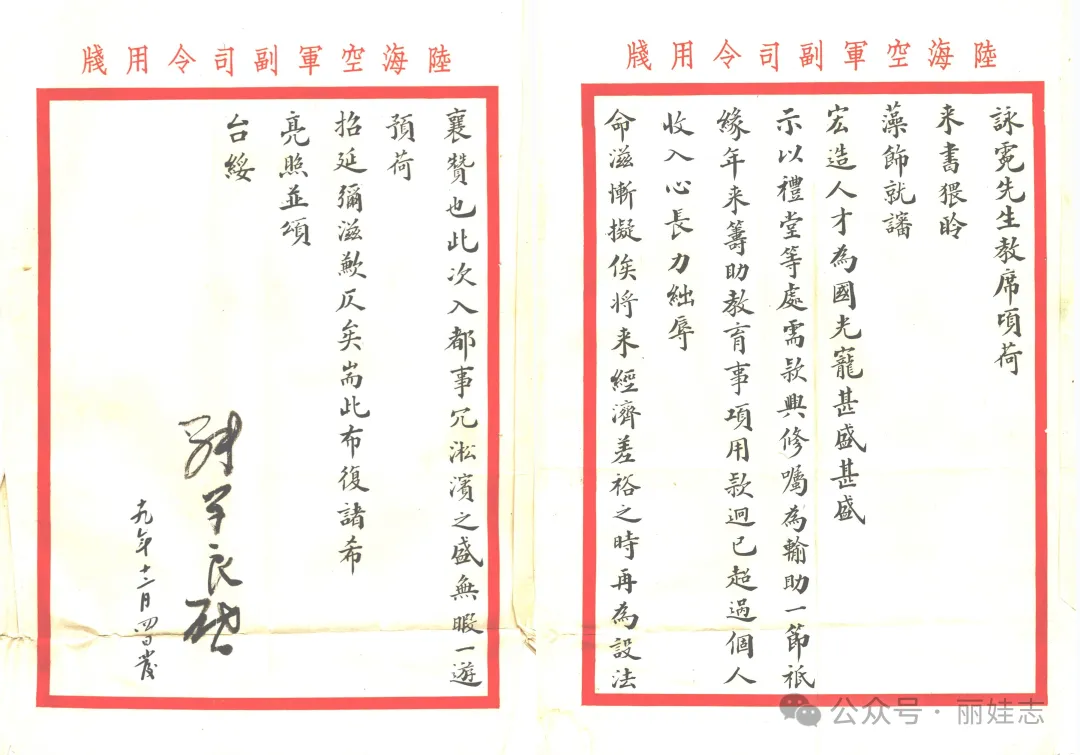 陸海空軍副司令用牋
詠霓先生教席頃荷
来書猥聆
藻飾就讅
宏造人才為國光寵甚盛甚盛
示以禮堂等處需款興修囑為輸助一節祇
緣年来籌助教育事項用款迥已超過個人
收入心長力絀辱
命滋慚擬俟將来經濟差裕之時再為設法
陸海空軍副司令用牋
襄贊也此次入都事冗淞濱之盛無暇一遊
預荷
招延彌滋歉仄矣耑此布復諸希
亮照並頌
台綏
張學良啟
十九年十二月四日發
公众号 · 丽娃志